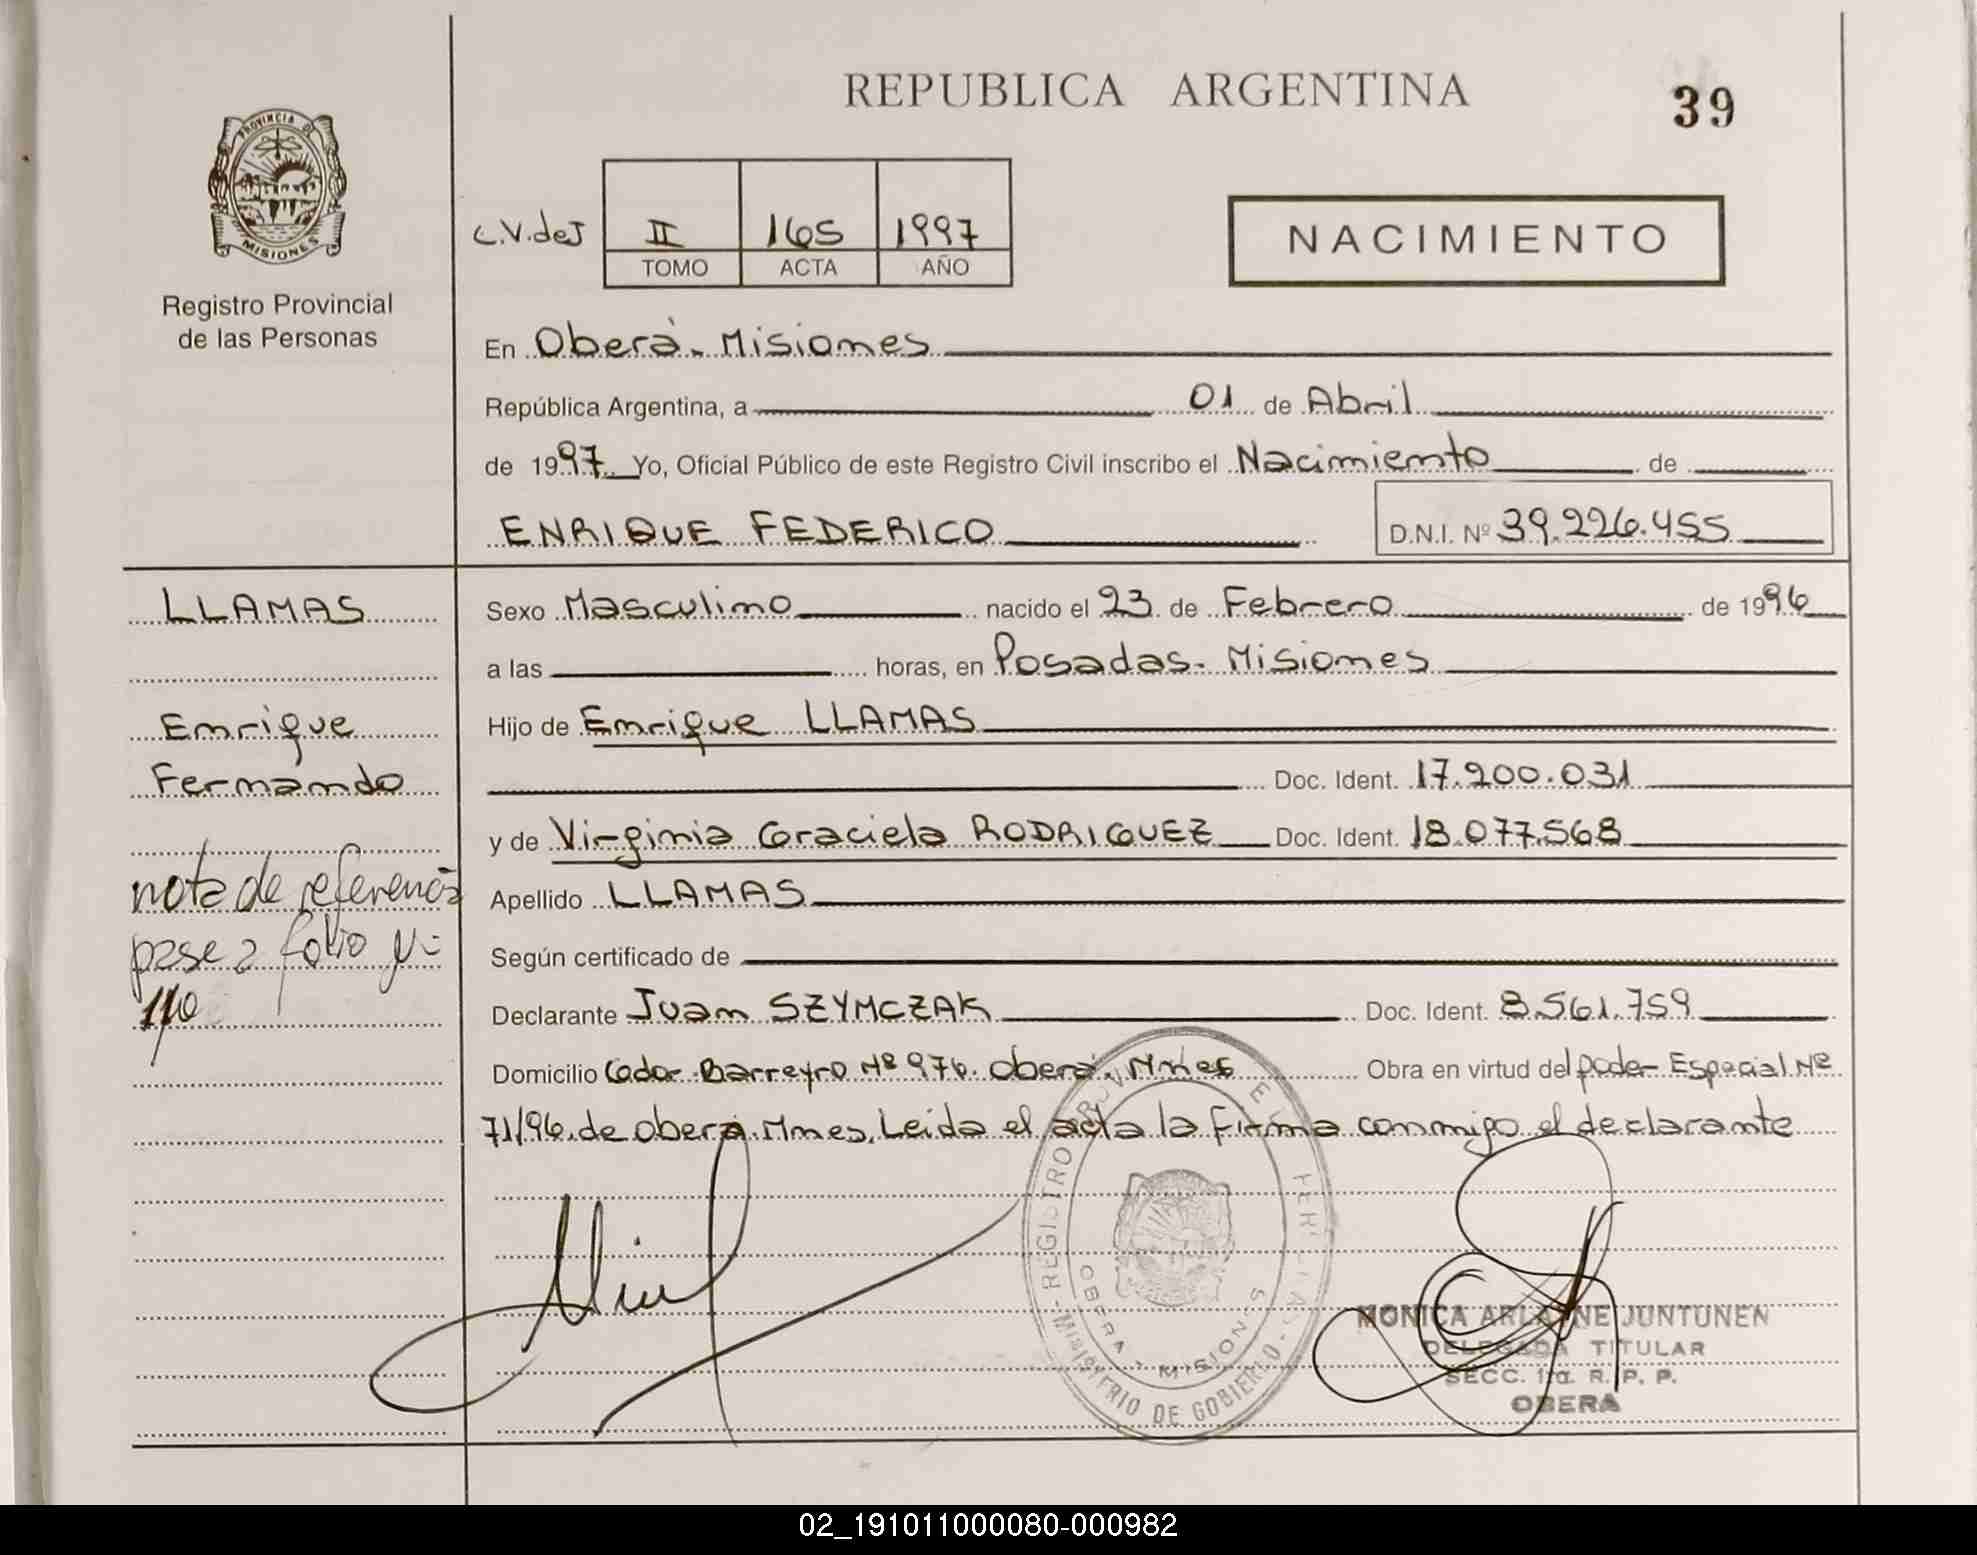 REPUBLICA ARGENTINA
39
PROVINCIA DE
MISIONES
Registro Provincial
de las Personas
C.V.deJ
II 165 1997
TOMO ACTA AÑO
NACIMIENTO
En Oberá- Misiones
República Argentina, a 01 de Abril
de 1997 Yo, Oficial Público de este Registro Civil inscribo el Nacimiento de
ENRIQUE FEDERICO D.N.I. Nº 39.226.455
LLAMAS
Enrique
Fernando
nota de referencia
pase a folio Nº
110
Sexo Masculino nacido el 23 de Febrero de 1996
a las horas, en Posadas- Misiones
Hijo de Enrique LLAMAS
Doc. Ident. 17.200.031
y de Virginia Graciela RODRIGUEZ Doc. Ident. 18.077.568
Apellido LLAMAS
Según certificado de
Declarante Juan SZYMCZAK Doc. Ident. 8.561.759
Domicilio Gdor Barreyro Nº 976. Oberá, Mnes Obra en virtud del poder Especial Nº
71/96, de Oberá, Mnes, Leida el acta la firma conmigo el declarante
OBERA - MISIONES
MINISTERIO DE GOBIERNO
MONICA ARLAINE JUNTUNEN
DELEGADA TITULAR
SECC. 1ra. R. P. P.
OBERA
02_191011000080-000982